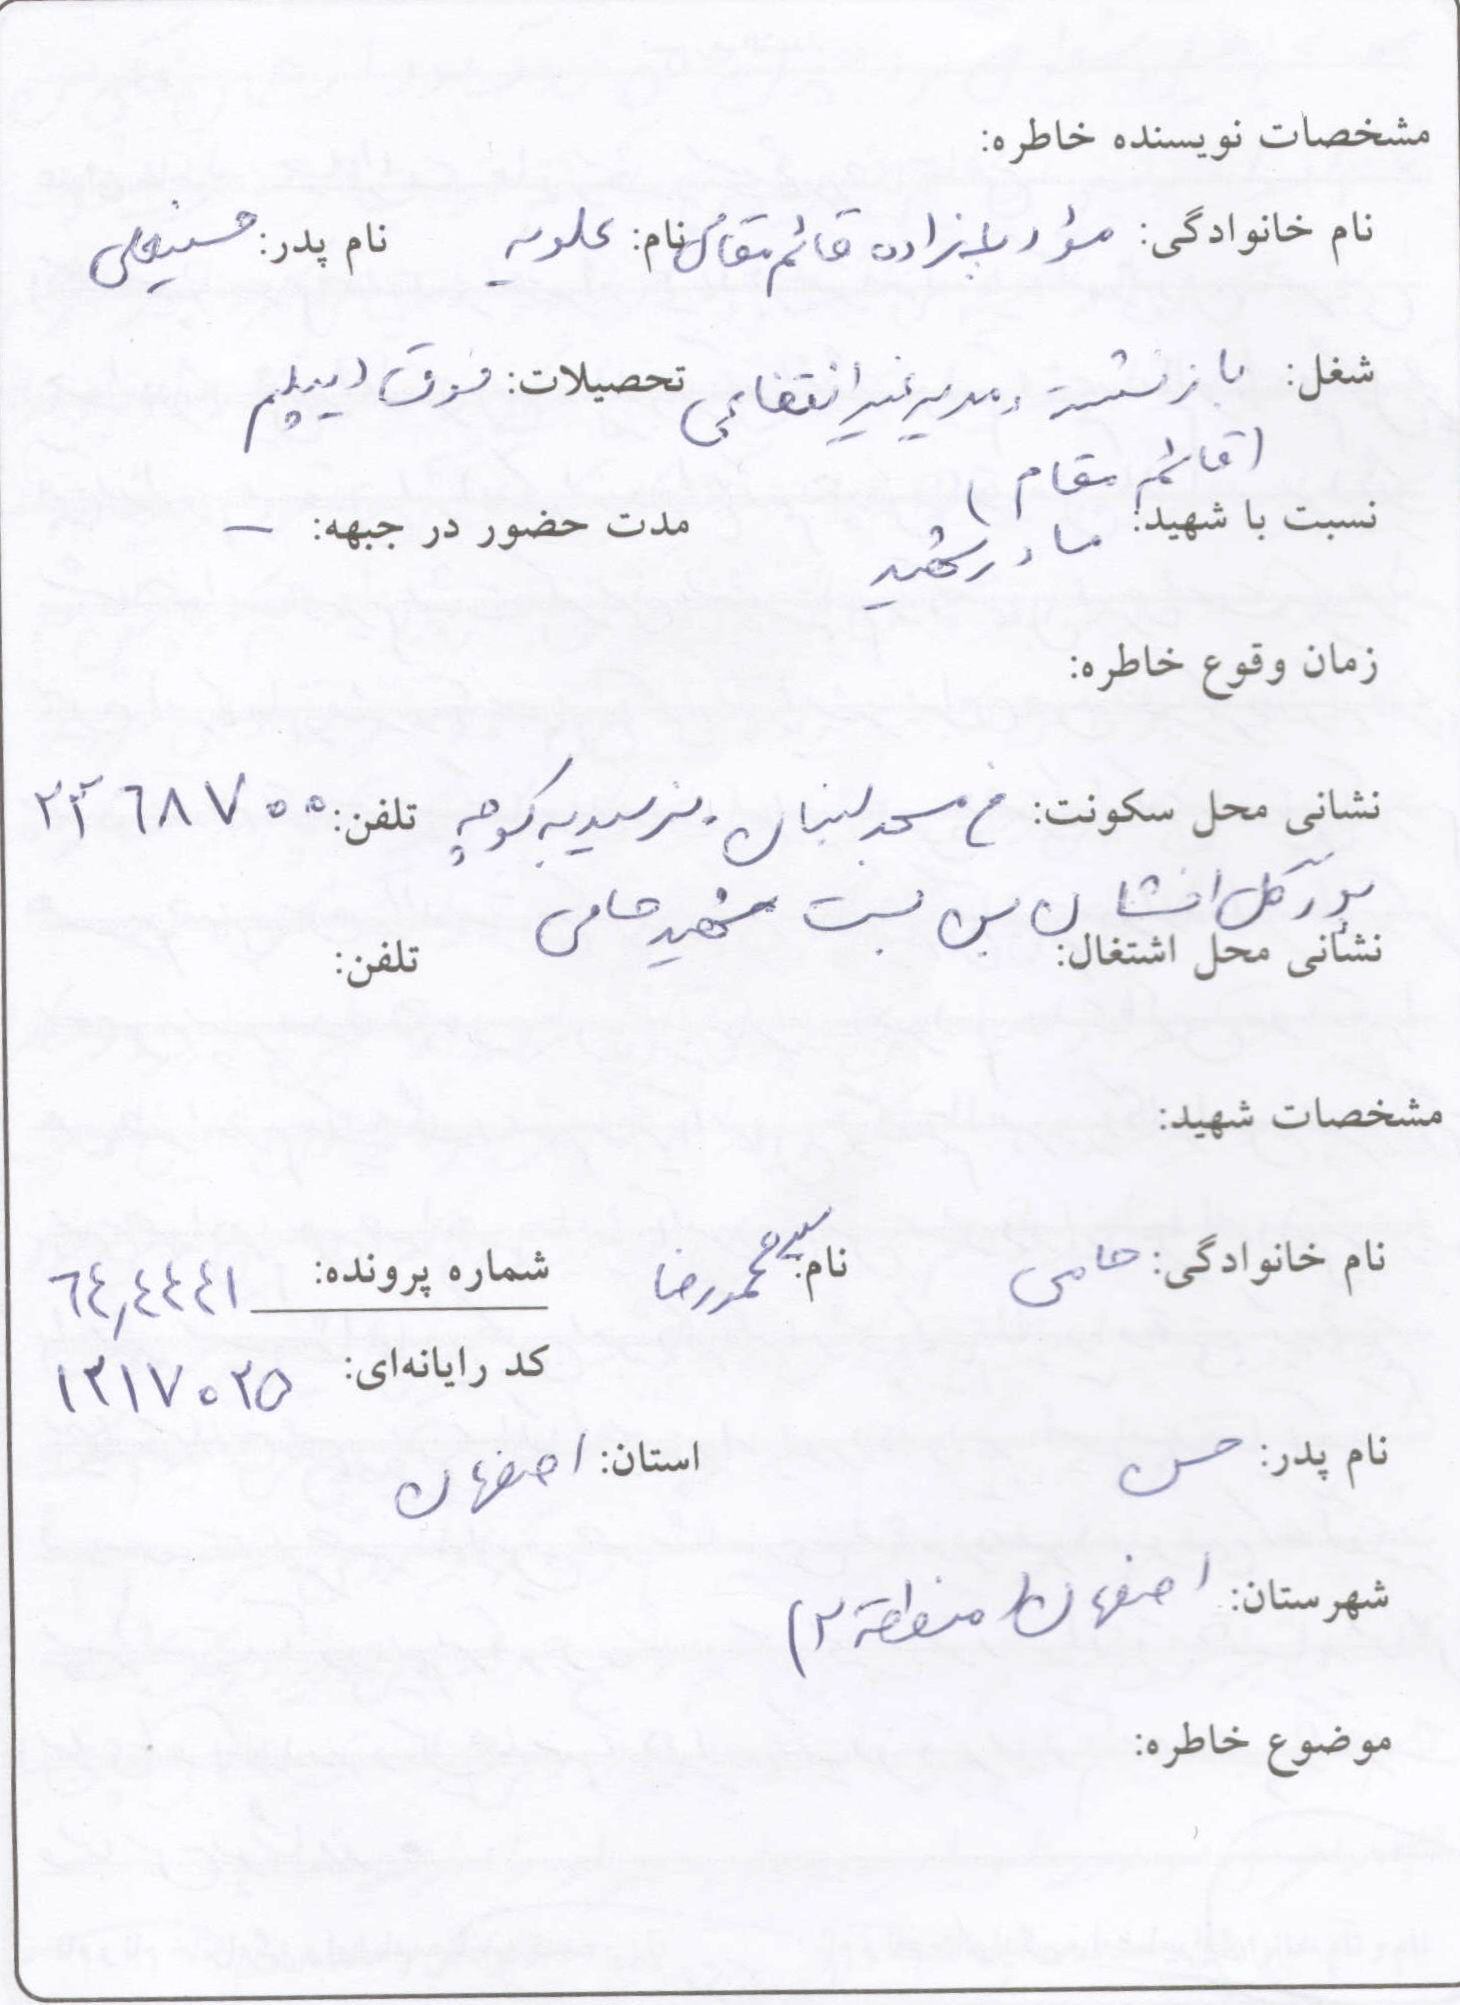 مشخصات نویسنده خاطره:
نام خانوادگی: زاده قائم مقامی نام: علویه نام پدر: حسینعلی
شغل: بازنشسته و مدیر غیرانتفاعی تحصیلات: فوق دیپلم
(قائم مقام)
نسبت با شهید: مادر شهید مدت حضور در جبهه: –
زمان وقوع خاطره:
نشانی محل سکونت: خ مسجد لنبان. نرسیده به کوچه تلفن: ۲۳۶۸۷۰۰
پور گل افشان بن بست شهید حامی
نشانی محل اشتغال: تلفن:
مشخصات شهید:
نام خانوادگی: حامی نام: سید محمدرضا شماره پرونده: ٦٤,٤٤٤١
کد رایانه‌ای: ۱۲۱۷۰۲۵
نام پدر: حسن استان: اصفهان
شهرستان: اصفهان (منطقه ۲)
موضوع خاطره: